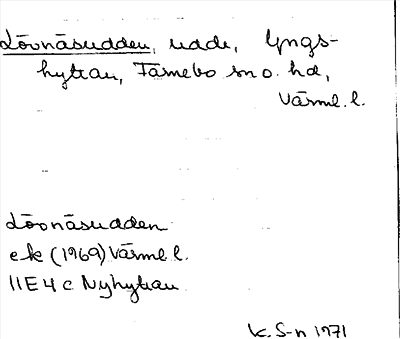 Lövnäsudden, udde, Lyngs-
hyttan, Färnebo sn o. hd,
Värml. l.
Lövnäsudden
ek (1969) Värml. l.
11E 4 c Nyhyttan
K. S-n 1971